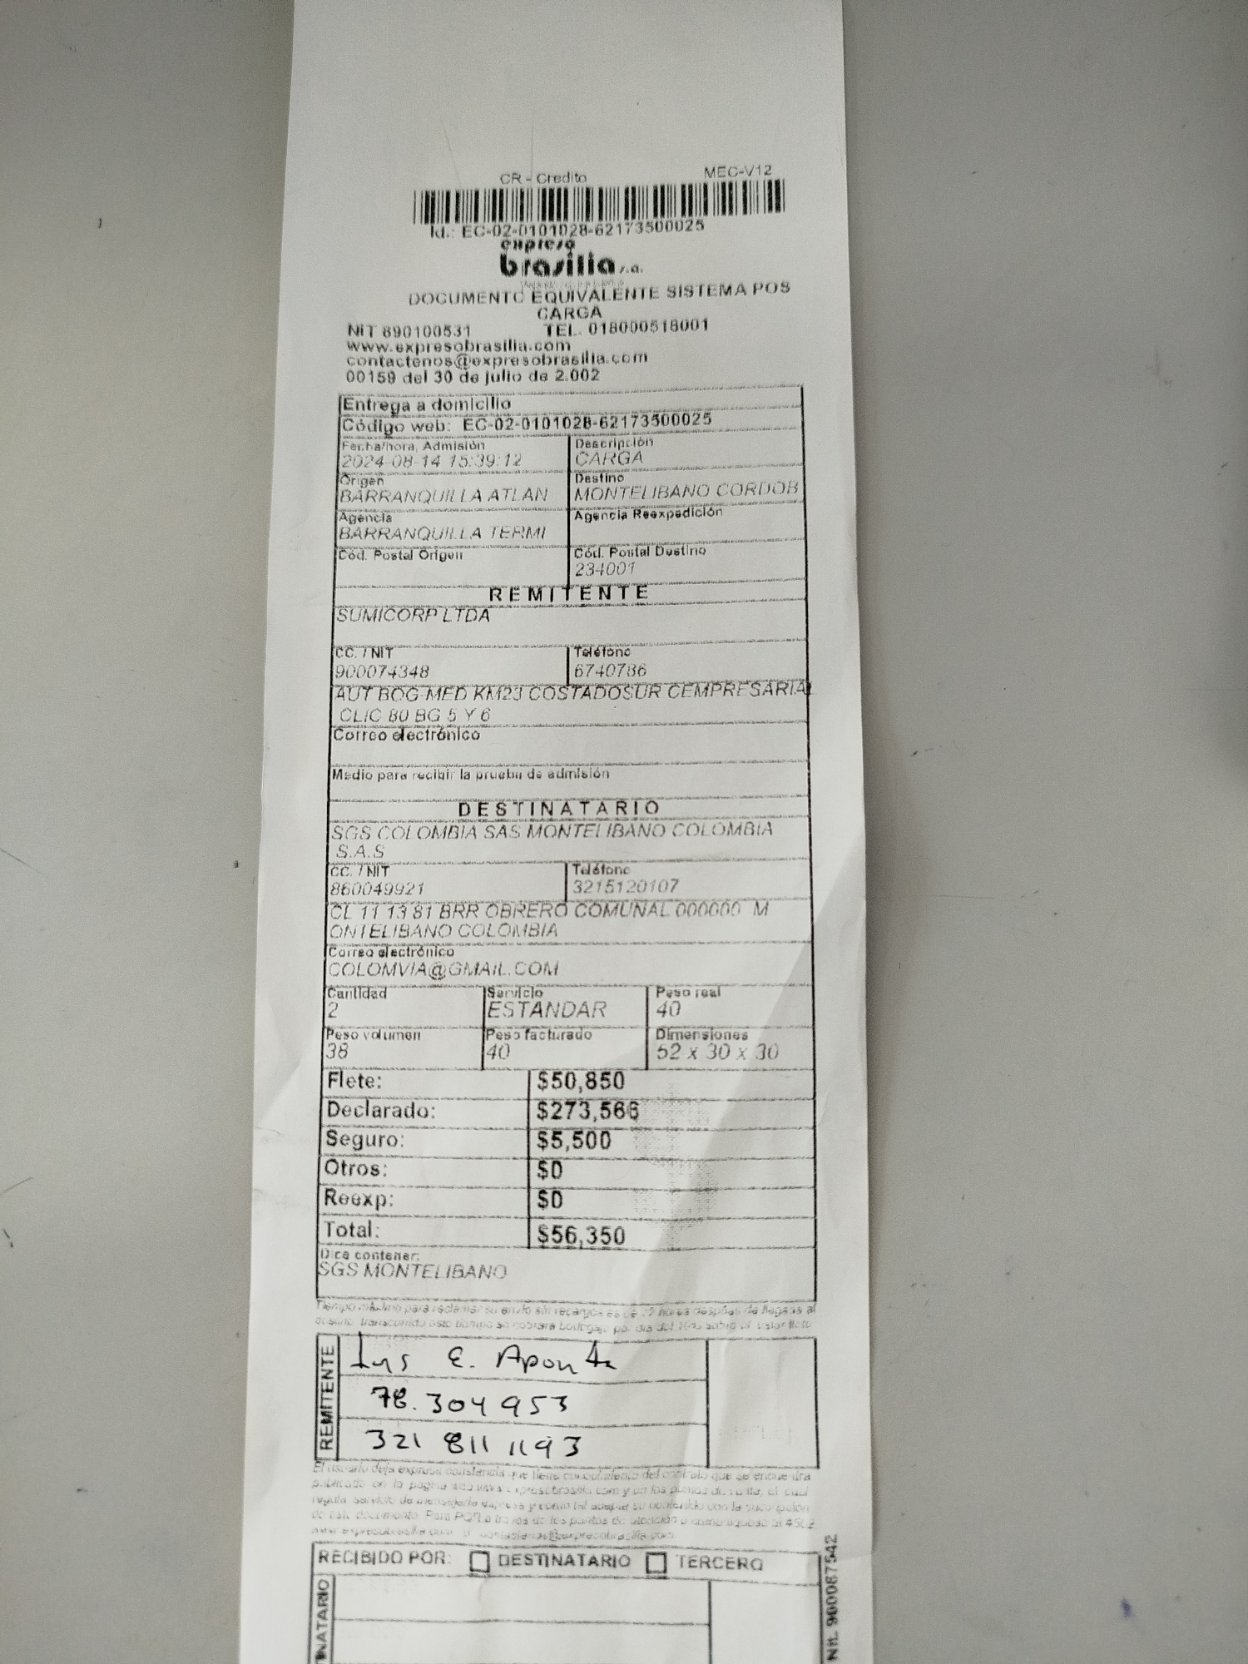 CR - Credito MEC-V12
Id.: EC-02-0101028-62173500025
expreso
brasilia s.a.
DOCUMENTO EQUIVALENTE SISTEMA POS
CARGA
NIT 890100531 TEL. 018000518001
www.expresobrasilia.com
contactenos@expresobrasilia.com
00159 del 30 de julio de 2.002
Entrega a domicilio
Código web: EC-02-0101028-62173500025
Fecha/hora, Admisión Descripción
2024-08-14 15:39:12 CARGA
Origen Destino
BARRANQUILLA ATLAN MONTELIBANO CORDOB
Agencia Agencia Reexpedición
BARRANQUILLA TERMI
Cód. Postal Origen Cód. Postal Destino
234001
REMITENTE
SUMICORP LTDA
CC. / NIT Teléfono
900074348 6740786
AUT BOG MED KM23 COSTADOSUR CEMPRESARIAL
CLIC 80 BG 5 Y 6
Correo electrónico
Medio para recibir la prueba de admisión
DESTINATARIO
SGS COLOMBIA SAS MONTELIBANO COLOMBIA
S.A.S
CC. / NIT Teléfono
860049921 3215120107
CL 11 13 81 BRR OBRERO COMUNAL 000000 M
ONTELIBANO COLOMBIA
Correo electrónico
COLOMVIA@GMAIL.COM
Cantidad Servicio Peso real
2 ESTANDAR 40
Peso volumen Peso facturado Dimensiones
38 40 52 x 30 x 30
Flete: $50,850
Declarado: $273,566
Seguro: $5,500
Otros: $0
Reexp: $0
Total: $56,350
Dice contener:
SGS MONTELIBANO
Tiempo máximo para reclamar su envío sin recargos es de 72 horas después de llegada al
REMITENTE
Luis E. Aponte
78.304953
321 811 1193
RECIBIDO POR: DESTINATARIO TERCERO
NATARIO
Nit. 900087542